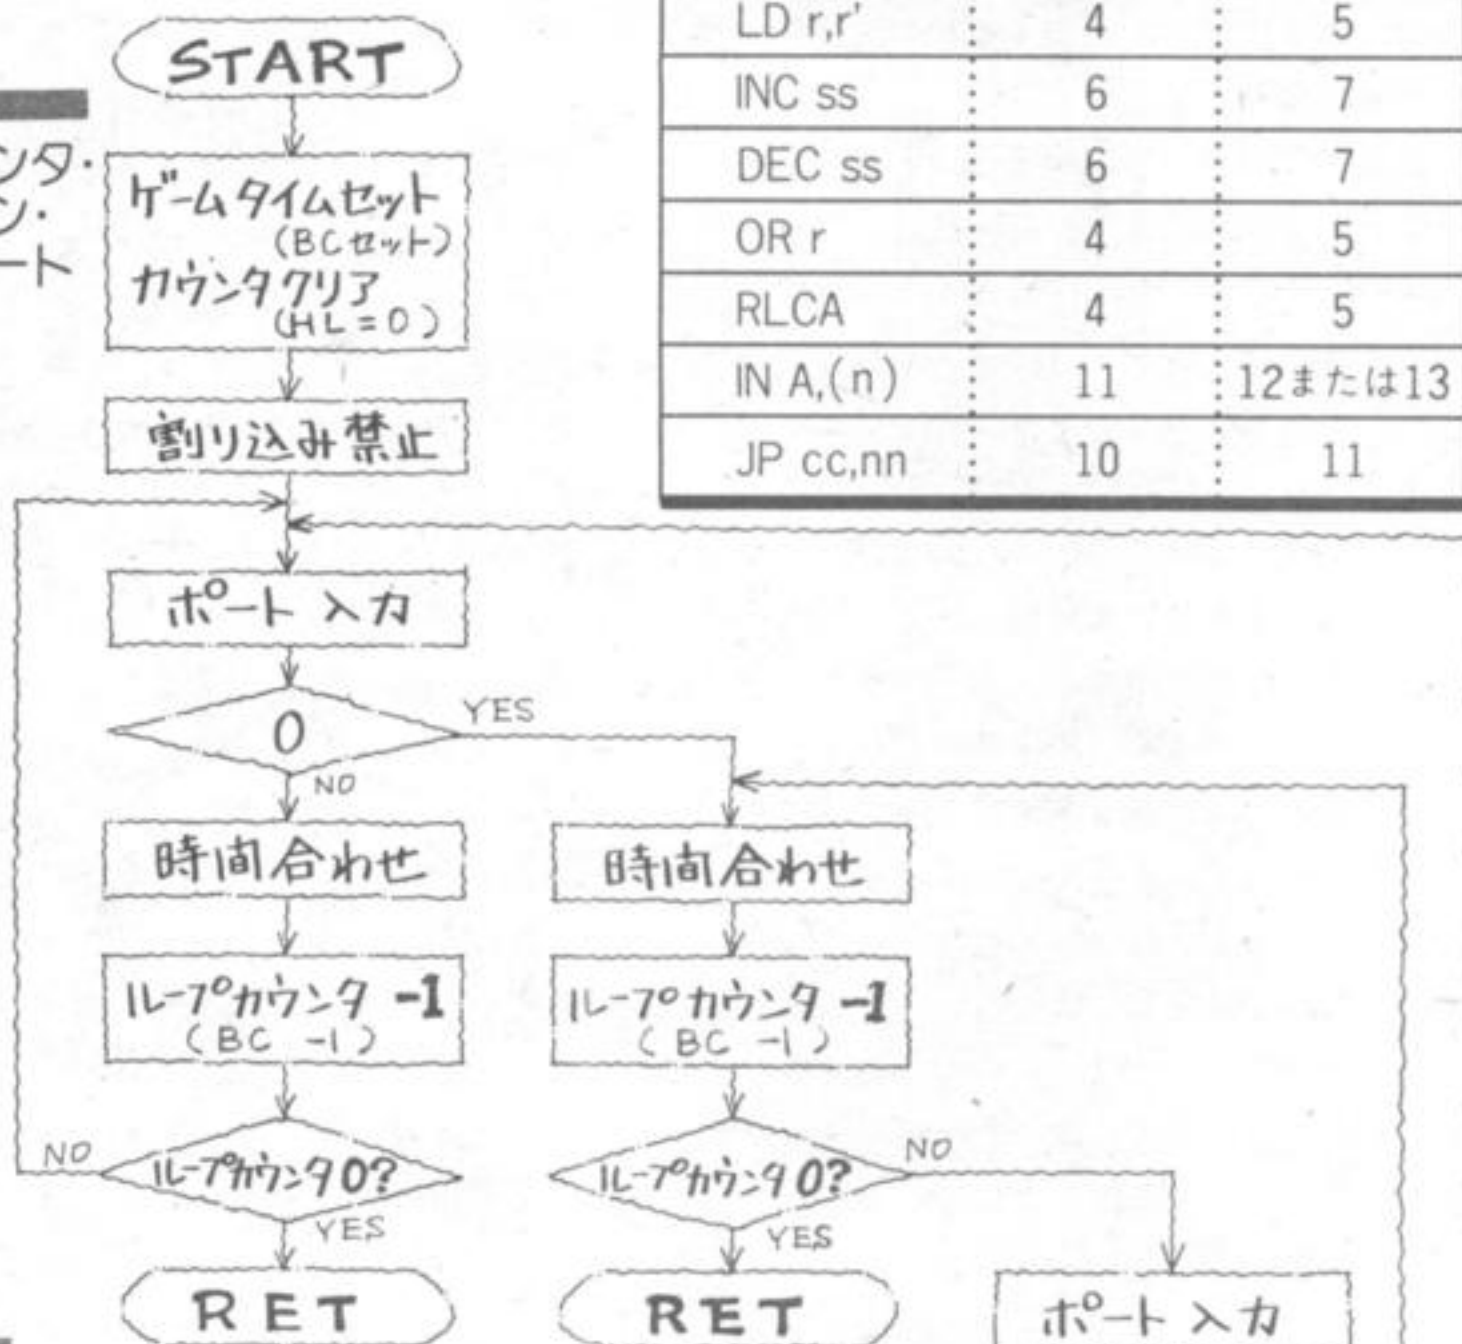 ンタ・
ン・
ート
LD r,r' 4 5
INC ss 6 7
DEC ss 6 7
OR r 4 5
RLCA 4 5
IN A,(n) 11 12または13
JP cc,nn 10 11
START
ゲームタイムセット
(BCセット)
カウンタクリア
(HL=0)
割り込み禁止
ポート入力
0
YES
NO
時間合わせ
ループカウンタ -1
(BC -1)
ループカウンタ0?
NO
YES
RET
時間合わせ
ループカウンタ -1
(BC -1)
ループカウンタ0?
NO
YES
RET
ポート入力